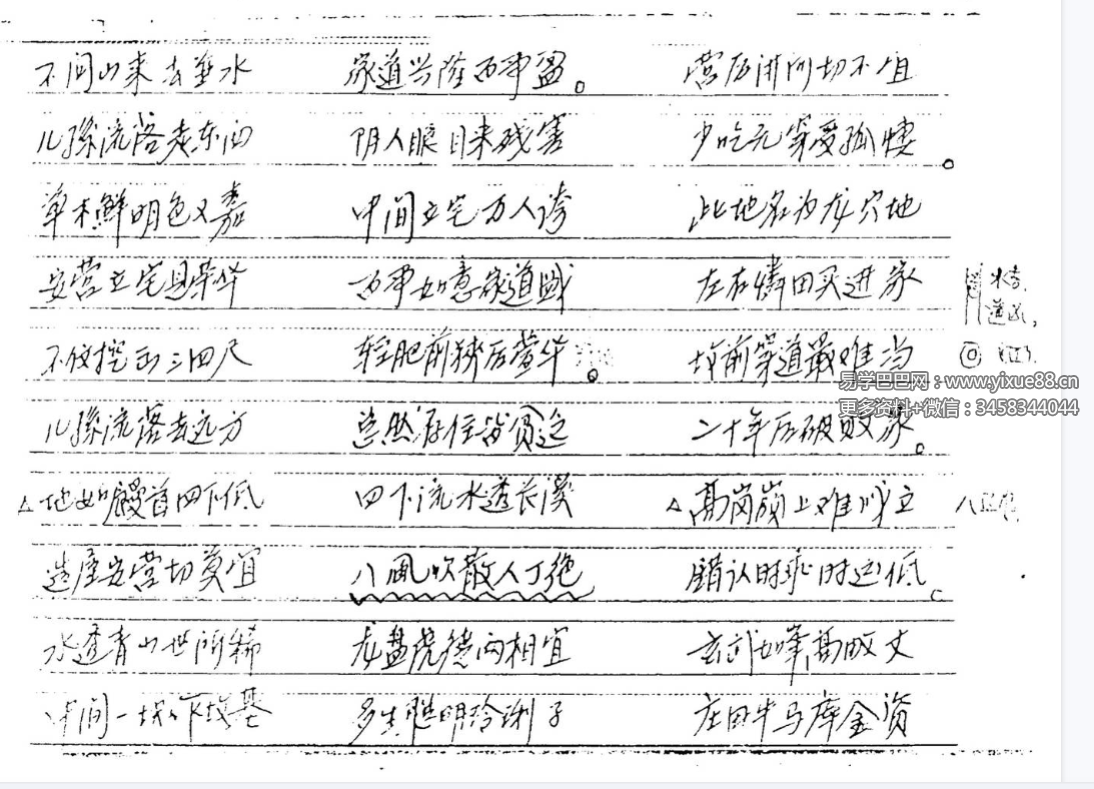 不问山来去垂水 家道兴隆百事盈。 营后讲问切不宜
儿孙流落走东西 阴人眼目来残害 少吃无穿受孤悽。
草木鲜明色又嘉 中间立宅万人夸 此地名为龙穴地
安营立宅见荣华 百事如意家道盛 左右憐田买进家
不佼挖出三四尺 轻肥前狭后营华。 坟前穿道最难当
儿孙流落去远方 总然存住皆贫乏 二十年后破败家。
△地如馒首四下低 四下流水透长溪 △高岗崩上难以立
造屋安营切莫宜 八风吹散人丁绝 错认时乖时运低。
水透青山世所稀 龙盘虎德两相宜 玄武如峰高数丈
中间一块下坟基 多生聪明玲琍子 庄田牛马库金资
道凶,
易学巴巴网:www.yixue88.cn
更多资料+微信:3458344044